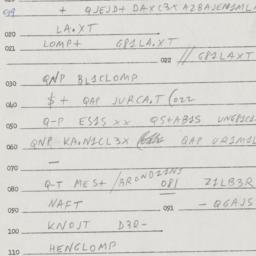 + QJEJD+ DAXC3X AZBAJEN1ML
020 LA.XT
021 LOMP+ G81LA.XT
022 // G81LAXT
030 QNP BL1CLOMP
040 $ + QAP JURCA.T (022
050 Q-P ES1S XX QS+AB1S
060 QNP KA.N1CL3X QAP
070 —
080 Q-T MES+ /BROND21NS 081 Z1LB3R
090 NAFT 091 - QGAJS
100 KNOJT D3Q-
110 HENGLOMP